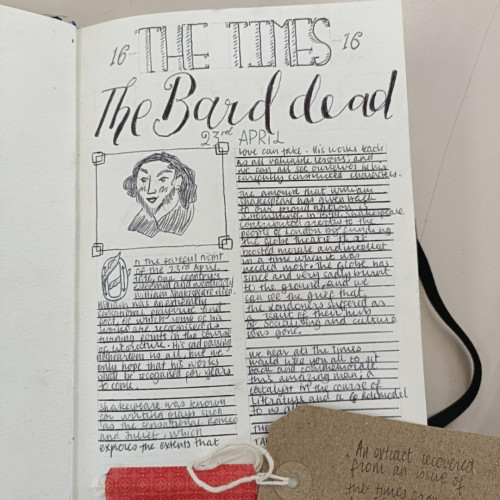 16 THE TIMES 16
The Bard dead
23rd APRIL
On the sorrowful night
of the 23rd April,
William Shakespeare died.
William was an
sensational playwright and
poet of which some of his
works are recognised as
turning points in the course
of literature. His sad passing
us all, but we
only hope that his works
will be recognised for years
to come.
Shakespeare was known
for writing plays such
as the sensational Romeo
and Juliet, which
explores the extents that
love can take. His works teach
us all valuable lessons, and
we can all see ourselves in his
carefully constructed characters.
The amount that William
Shakespeare has given back
to our proud nation is
In Shakespeare
contributed greatly to the
people of London by funding
the Globe Theatre. It
boosted morale and intellect
in a time when it was
needed most. The Globe has
since and very sadly burnt
to the ground, and we
can see the grief that
the Londoners suffered as
a result of their hub
of socialising and culture
was gone.
We hear at The Times
would like you all to sit
back and commemorate
this amazing man, a
catalyst in the course of
literature and a role model
to us all.
An extract recovered
from an issue of
the times